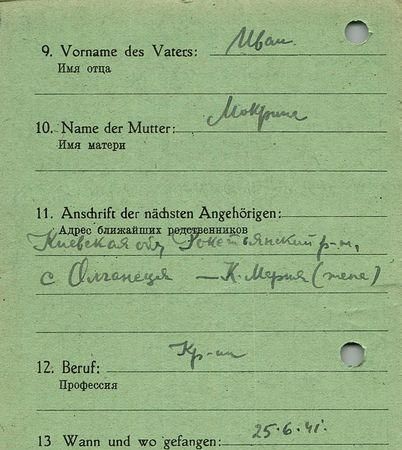 9. Vorname des Vaters: Иван
Имя отца
10. Name der Mutter: Мокрина
Имя матери
11. Anschrift der nächsten Angehörigen:
Адрес ближайших родственников
Киевская обл р-н,
с - К. Мария (жена)
12. Beruf: Кр-ин
Профессия
13 Wann und wo gefangen: 25.6.41.